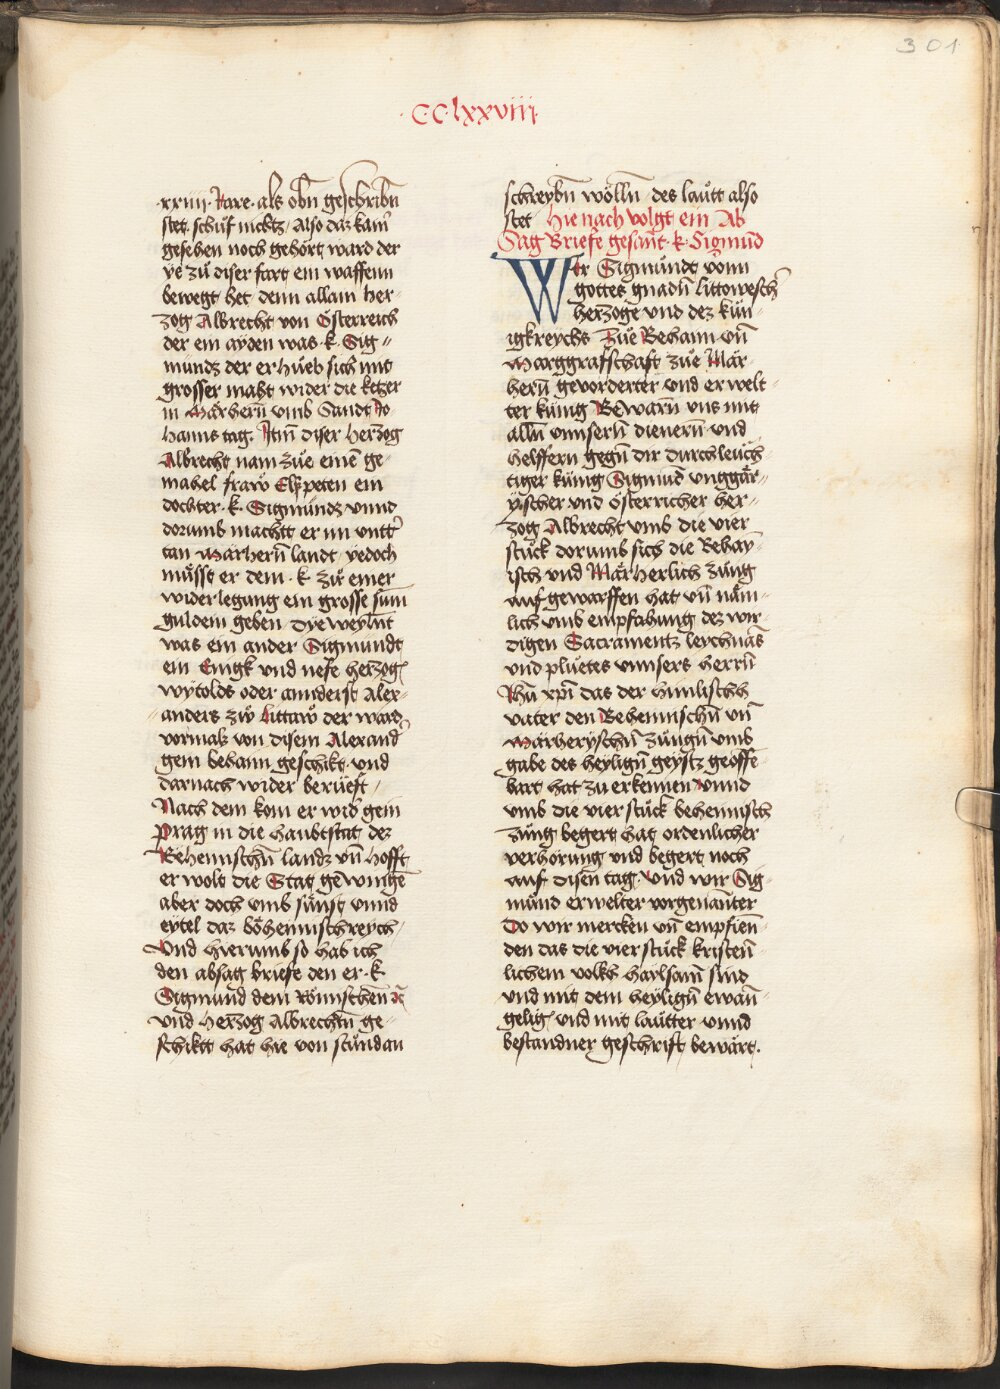 301
·CC·lxxviii·
·xxiiii· Jare· als obn̄ geschribn̄
stet· schuͦf nichtz· Also daz kam̄
gesehen noch gehört ward der
ye zuͤ diser fart ein waffenn
bewegt het· denn allain her⸗
zog Albrecht von Österreich
der ein ayden was ·k· Sig⸗
mundz der erhueb sich mit
grosser maht wider die ketzer
in Märhern̄ vmb Sandt Jo⸗
hanns tag· Itm̄ diser Herzog
Albrecht nam zuͤe einē ge⸗
mahel fraẅ Elspeten ein
dochter ·k· Sigmundz vnnd
dorumb machtt er im vntter
tan Märhern̄ landt· yedoch
müsst er dem ·k· zuͤ einer
widerlegung ein grosse sum̄
guldein geben· Dyeweyln̄t
was ein ander Sigmundt
ein Enigk vnd nefe hertzog
wytolds oder annderst Alex⸗
anders zẅ littaẅ der ward
vormalz von disem Alexand
gem behann geschikt· vnd
darnach wider berüeft·
Nach dem kom er wid' gein
Prag in die haubtstat dez
Behennschn̄ landz vn̄ hofft
er wolt die Stat gewingē
aber doch vmb sünst vnnd
eytel daz böhennischreych·
Vnd hierumb so hab ich
den absag briefe den er ·k·
Sigmund dem Römischen ꝛc̄
vnd Herzog Albrechtn̄ ge⸗
schiktt hat hie von stundan
schreybn̄ wölln̄· des lautt also
stet· Hie nach volgt ein Ab
Sag Briefe gesant ·k· Sigmūd
Wir Sigmundt vonn
gottes gnadn̄ littowesch'
herzoge vnd dez kün⸗
igkreychs Zuͤe Behaim vn̄
Marggrafschaft zuͤe Mär⸗
hern̄ gevorderter vnd erwelt⸗
ter künig Bewarn̄ vns mit
alln̄ vnnsern̄ dienern̄ vnd
helffern gegn̄ dir durchleuch⸗
tiger künig Sigmūd vnggär⸗
yscher vnd österricher her⸗
zog Albrecht vmb die vier
stück dorumb sich die Behay⸗
isch vnd Märherlich zung
aufgewarffen hat vn̄ näm⸗
lich vmb empfahung dez wir⸗
digen Sacramentz leychnās
vnd pluetes vnnsers herrn̄
Jhū xpī das der himlischh
vater den Behennischn̄ vn̄
Märheryschn̄ zungn̄ vmb
gabe des heylign̄ geystz geöffe⸗
bart hat zu erkennen Vnnd
vmb die vier stück behennisch
zung begert hat ordenlicher
verhörung vnd begert noch
auf disen tag· Vnd wir Sig⸗
mund erwelter vorgenāter
Do wir mercken vn̄ empfien̄⸗
den das die vier stück kristen̄⸗
lichem volkh haylsam̄ sind
vnd mit dem heylign̄ ewan̄⸗
gelig· vnd mit lautter vnnd
bestandner geschrift bewärt.